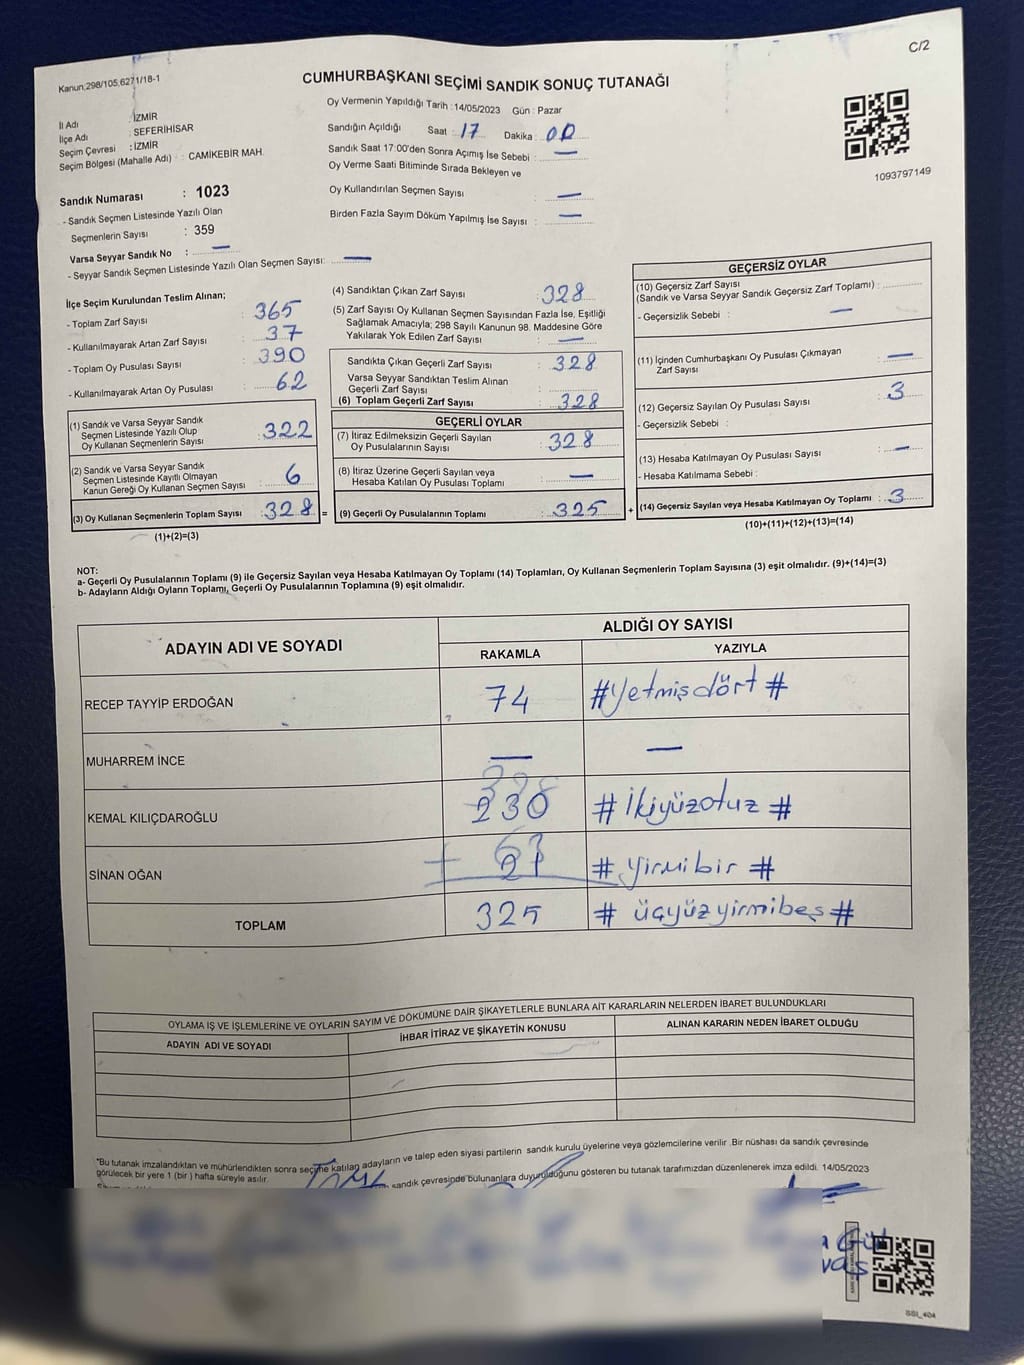 Kanun;298/105,6271/18-1
C/2
CUMHURBAŞKANI SEÇİMİ SANDIK SONUÇ TUTANAĞI
İl Adı : İZMİR
İlçe Adı : SEFERİHİSAR
Seçim Çevresi : İZMİR
Seçim Bölgesi (Mahalle Adı) : CAMİKEBİR MAH.
Sandık Numarası : 1023
- Sandık Seçmen Listesinde Yazılı Olan
Seçmenlerin Sayısı : 359
Varsa Seyyar Sandık No : —
- Seyyar Sandık Seçmen Listesinde Yazılı Olan Seçmen Sayısı: —
Oy Vermenin Yapıldığı Tarih : 14/05/2023 Gün : Pazar
Sandığın Açıldığı Saat : 17 Dakika : 00
Sandık Saat 17:00'den Sonra Açımış İse Sebebi : —
Oy Verme Saati Bitiminde Sırada Bekleyen ve
Oy Kullandırılan Seçmen Sayısı —
Birden Fazla Sayım Döküm Yapılmış İse Sayısı : —
1093797149
İlçe Seçim Kurulundan Teslim Alınan;
- Toplam Zarf Sayısı : 365
- Kullanılmayarak Artan Zarf Sayısı : 37
- Toplam Oy Pusulası Sayısı : 390
- Kullanılmayarak Artan Oy Pusulası : 62
(1) Sandık ve Varsa Seyyar Sandık
Seçmen Listesinde Yazılı Olup
Oy Kullanan Seçmenlerin Sayısı : 322
(2) Sandık ve Varsa Seyyar Sandık
Seçmen Listesinde Kayıtlı Olmayan
Kanun Gereği Oy Kullanan Seçmen Sayısı : 6
(3) Oy Kullanan Seçmenlerin Toplam Sayısı : 328 =
(1)+(2)=(3)
(4) Sandıktan Çıkan Zarf Sayısı : 328
(5) Zarf Sayısı Oy Kullanan Seçmen Sayısından Fazla İse, Eşitliği
Sağlamak Amacıyla; 298 Sayılı Kanunun 98. Maddesine Göre
Yakılarak Yok Edilen Zarf Sayısı : —
Sandıkta Çıkan Geçerli Zarf Sayısı : 328
Varsa Seyyar Sandıktan Teslim Alınan
Geçerli Zarf Sayısı :
(6) Toplam Geçerli Zarf Sayısı : 328
GEÇERLİ OYLAR
(7) İtiraz Edilmeksizin Geçerli Sayılan
Oy Pusulalarının Sayısı : 328
(8) İtiraz Üzerine Geçerli Sayılan veya
Hesaba Katılan Oy Pusulası Toplamı : —
(9) Geçerli Oy Pusulalarının Toplamı : 325 +
GEÇERSİZ OYLAR
(10) Geçersiz Zarf Sayısı
(Sandık ve Varsa Seyyar Sandık Geçersiz Zarf Toplamı) :
- Geçersizlik Sebebi : —
(11) İçinden Cumhurbaşkanı Oy Pusulası Çıkmayan
Zarf Sayısı : —
(12) Geçersiz Sayılan Oy Pusulası Sayısı : 3
- Geçersizlik Sebebi :
(13) Hesaba Katılmayan Oy Pusulası Sayısı : —
- Hesaba Katılmama Sebebi :
(14) Geçersiz Sayılan veya Hesaba Katılmayan Oy Toplamı : 3
(10)+(11)+(12)+(13)=(14)
NOT:
a- Geçerli Oy Pusulalarının Toplamı (9) ile Geçersiz Sayılan veya Hesaba Katılmayan Oy Toplamı (14) Toplamları, Oy Kullanan Seçmenlerin Toplam Sayısına (3) eşit olmalıdır. (9)+(14)=(3)
b- Adayların Aldığı Oyların Toplamı, Geçerli Oy Pusulalarının Toplamına (9) eşit olmalıdır.
ADAYIN ADI VE SOYADI
ALDIĞI OY SAYISI
RAKAMLA YAZIYLA
RECEP TAYYİP ERDOĞAN 74 #Yetmişdört #
MUHARREM İNCE — —
KEMAL KILIÇDAROĞLU 230 # İkiyüzotuz #
SİNAN OĞAN 21 # yirmibir #
TOPLAM 325 # üçyüzyirmibeş #
OYLAMA İŞ VE İŞLEMLERİNE VE OYLARIN SAYIM VE DÖKÜMÜNE DAİR ŞİKAYETLERLE BUNLARA AİT KARARLARIN NELERDEN İBARET BULUNDUKLARI
ADAYIN ADI VE SOYADI İHBAR İTİRAZ VE ŞİKAYETİN KONUSU ALINAN KARARIN NEDEN İBARET OLDUĞU
*Bu tutanak imzalandıktan ve mühürlendikten sonra seçime katılan adayların ve talep eden siyasi partilerin sandık kurulu üyelerine veya gözlemcilerine verilir .Bir nüshası da sandık çevresinde
görülecek bir yere 1 (bir ) hafta süreyle asılır.
sandık çevresinde bulunanlara duyurulduğunu gösteren bu tutanak tarafımızdan düzenlenerek imza edildi. 14/05/2023
SSI_404